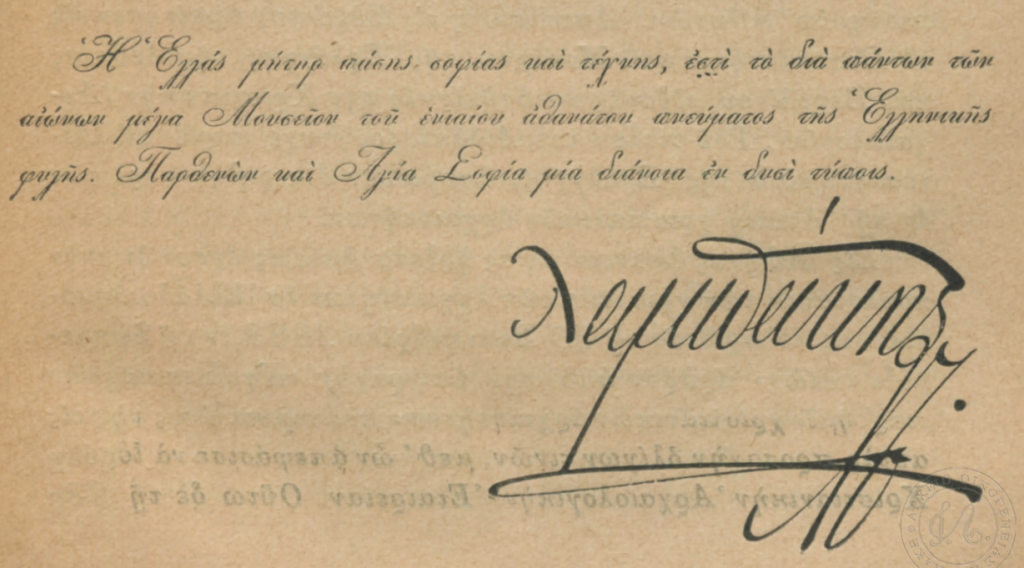 Ἡ Ἑλλάς μήτηρ πάσης σοφίας καὶ τέχνης, ἐστὶ τὸ διὰ πάντων τῶν
αἰώνων μέγα Μουσεῖον τοῦ ἑνιαίου ἀθανάτου πνεύματος τῆς Ἑλληνικῆς
φυλῆς. Παρθενὼν καὶ Ἁγία Σοφία μία διάνοια ἐν δυσὶ τύποις.
Λαμπάκης